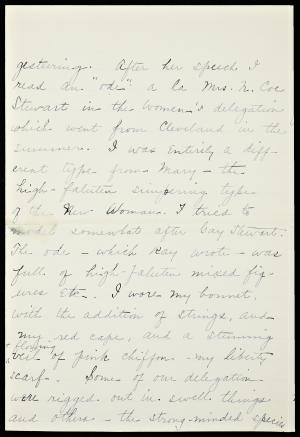 gesturing. After her speech I
read an "ode" a la Mrs. N. Coe
Stewart in the Women's delegation
which went from Cleveland in the
summer. I was entirely a diff-
erent type from Mary – the
high-falutin simpering type
of the New Woman. I tried to
model somewhat after Cay Stewart.
The ode – which Kay wrote – was
full of high-falutin mixed fig-
ures etc. I wore my bonnet,
with the addition of strings, and
my red cape, and a stunning
flowing
veil of pink chiffon – my liberty
scarf. Some of our delegation
were rigged out in swell things
and others – the strong-minded species